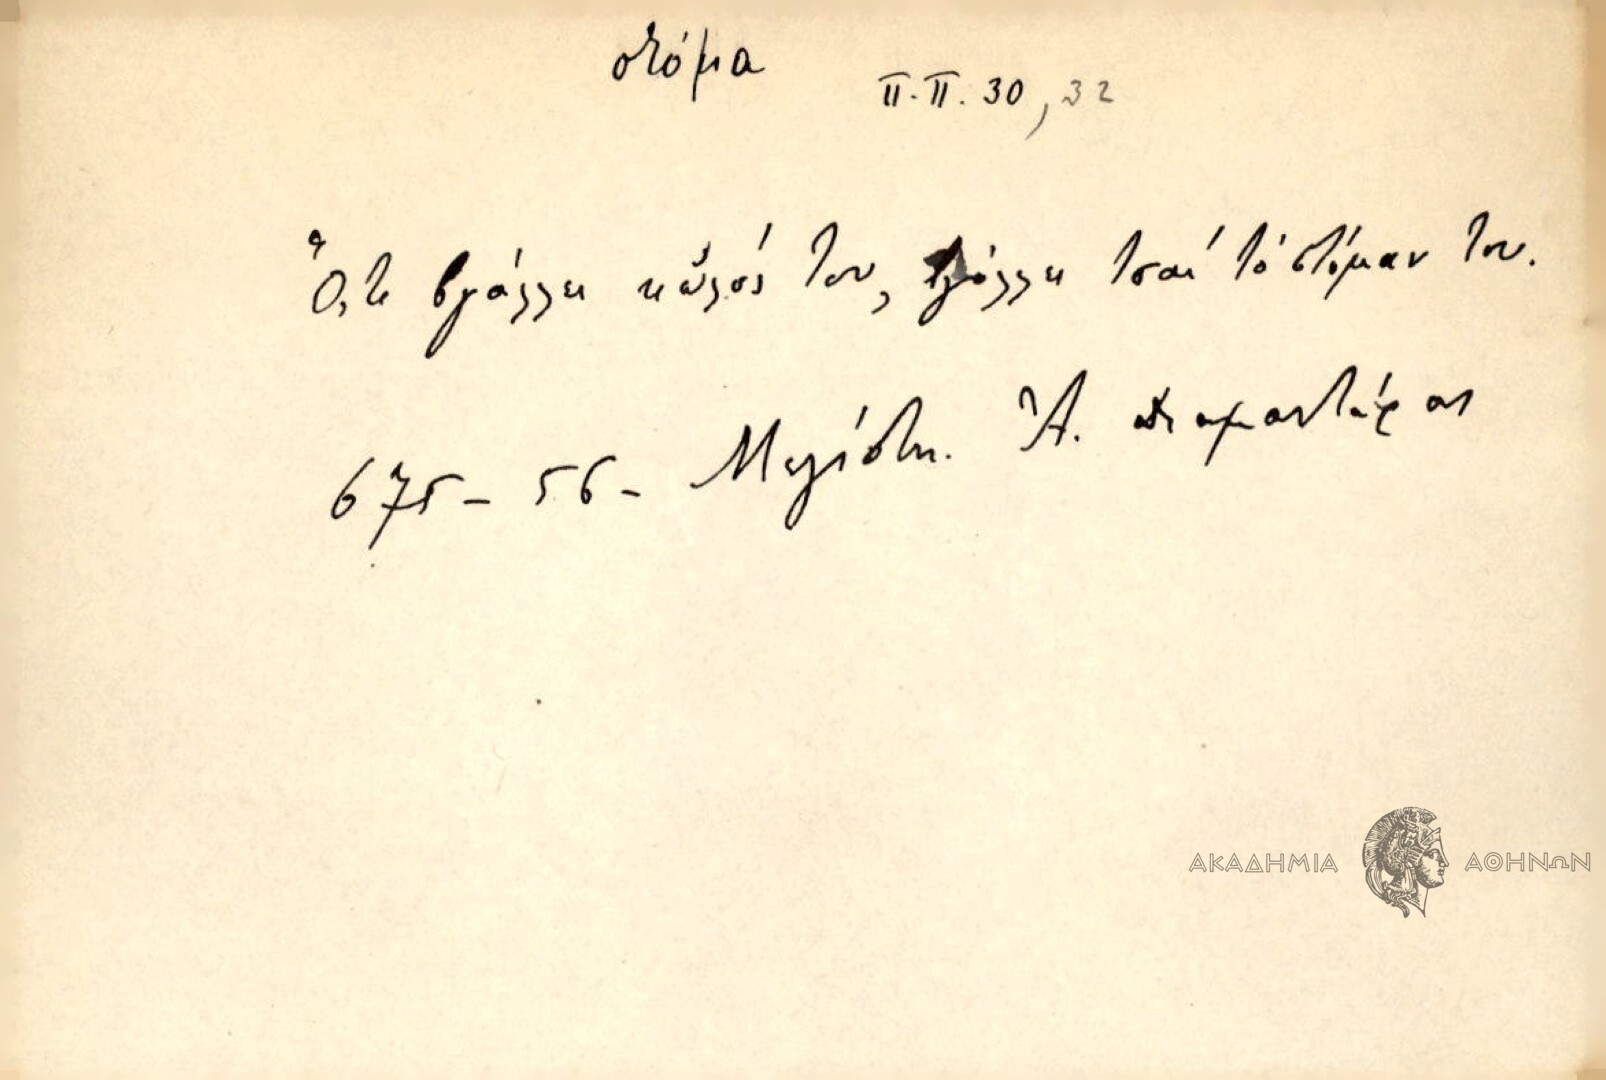 στόμα
Π.Π. 30, 32
Ὅ,τι βγάλλει ὁ κῶλός του, βγάλλει τσαί τό στόμαν του.
675 - 56 - Μεγίστη. Ἀ. Διαμαντάρας
ΑΚΑΔΗΜΙΑ ΑΘΗΝΩΝ